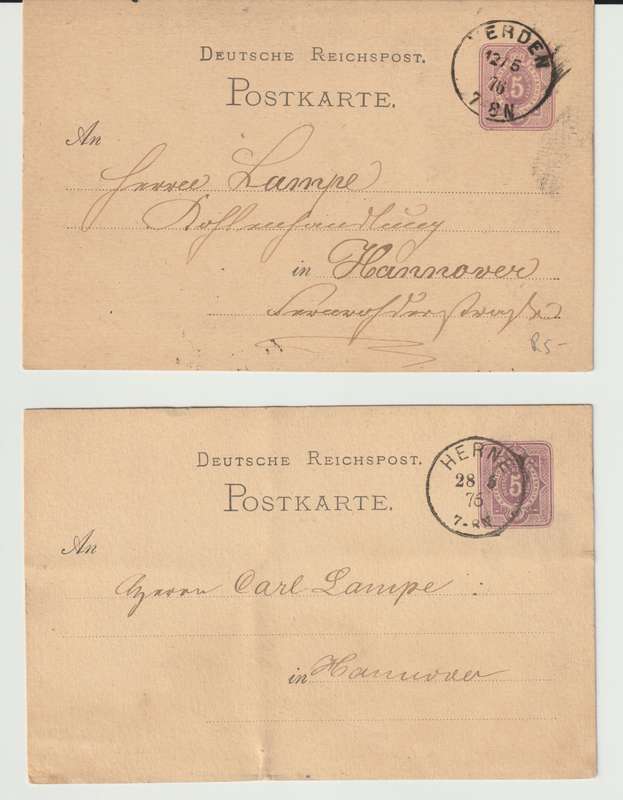 DEUTSCHE REICHSPOST.
POSTKARTE.
ERDEN
12/5
76
7-8N
5
An
Herrn Lampe
Kohlenhandlung
in Hannover
R5-
DEUTSCHE REICHSPOST.
POSTKARTE.
HERNE
28 5
76
7-8N
5
An
Herrn Carl Lampe
in Hannover